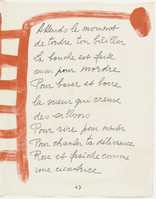 Attends le moment
de tordre ton bâillon
la bouche est faite
aussi pour mordre
Pour baver et boire
la sueur qui creuse
des sillons
Pour rire pour
Pour chanter ta délivrance
Rose et fraîche comme
une cicatrice